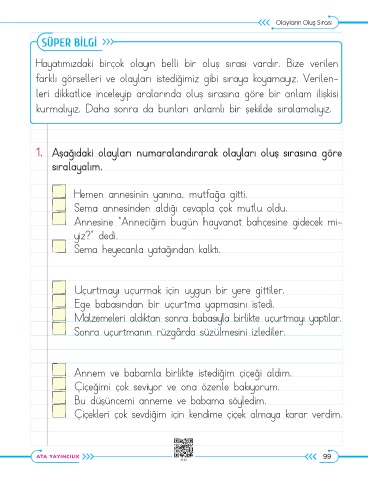 Olayların Oluş Sırası
SÜPER BİLGİ
Hayatımızdaki birçok olayın belli bir oluş sırası vardır. Bize verilen
farklı görselleri ve olayları istediğimiz gibi sıraya koyamayız. Verilen-
leri dikkatlice inceleyip aralarında oluş sırasına göre bir anlam ilişkisi
kurmalıyız. Daha sonra da bunları anlamlı bir şekilde sıralamalıyız.
1. Aşağıdaki olayları numaralandırarak olayları oluş sırasına göre
sıralayalım.
Hemen annesinin yanına, mutfağa gitti.
Sema annesinden aldığı cevapla çok mutlu oldu.
Annesine "Anneciğim bugün hayvanat bahçesine gidecek mi-
yiz?" dedi.
Sema heyecanla yatağından kalktı.
Uçurtmayı uçurmak için uygun bir yere gittiler.
Ege babasından bir uçurtma yapmasını istedi.
Malzemeleri aldıktan sonra babasıyla birlikte uçurtmayı yaptılar.
Sonra uçurtmanın rüzgârda süzülmesini izlediler.
Annem ve babamla birlikte istediğim çiçeği aldım.
Çiçeğimi çok seviyor ve ona özenle bakıyorum.
Bu düşüncemi anneme ve babama söyledim.
Çiçekleri çok sevdiğim için kendime çiçek almaya karar verdim.
ATA YAYINCILIK
99